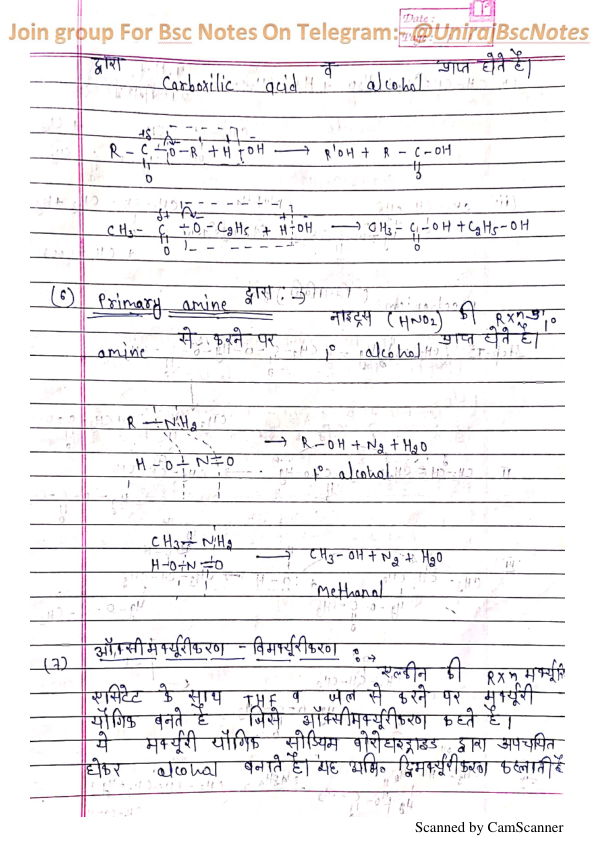 Date :
Join group For Bsc Notes On Telegram:- @UnirajBscNotes
द्वारा व प्राप्त होते हैं।
Carboxilic acid alcohol
R - C - O - R' + H - OH → R'OH + R - C - OH
O O
CH3 - C - O - C2H5 + H - OH → CH3 - C - OH + C2H5 - OH
O O
(6) Primary amine द्वारा :→ नाइट्रस (HNO2) की Rxn 1°
amine से करने पर 1° alcohol प्राप्त होते हैं।
R - NH2
→ R - OH + N2 + H2O
H - O - N = O
1° alcohol
CH3 - NH2
→ CH3 - OH + N2 + H2O
H - O - N = O
Methanol
(7) ऑक्सीमर्क्यूरीकरण - विमर्क्यूरीकरण :→ एल्कीन की Rxn मर्क्यूरि
एसिटेट के साथ THF व जल से करने पर मर्क्यूरी
यौगिक बनते है जिसे ऑक्सीमर्क्यूरीकरण कहते है।
ये मर्क्यूरी यौगिक सोडियम बोरोहाइड्राइड द्वारा अपचयित
होकर alcohol बनाते है। यह कहलाती है
Scanned by CamScanner